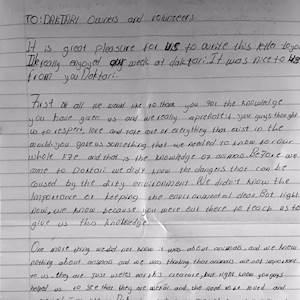 TO: DAKTARI Owners and volunteers
It is great pleasure for us to write this letter to you
I really enjoyed our week at daktari. It was nice to us
from you Daktari.
First of all we want to thank you for the knowledge
you have given us and we really apreciate you guys thought
us to respect, love and take care of everything that exist in the
world. you gave us something that we needed to know in our
whole life and that is the knowledge of animals Before we
came to Daktari we didn't know the dangers that can be
caused by the dirty environment We didn't know the
Importance of keeping the environmental clean. But right
now, we know because you were out there to teach us to
give us this knowledge.
One more thing we did not know is was about animals and we knew
nothing about animals and we was thinking that animals are not important
to us, they are just useless creature, but right know you guys
helped us to see that they are useful and they need more loved and